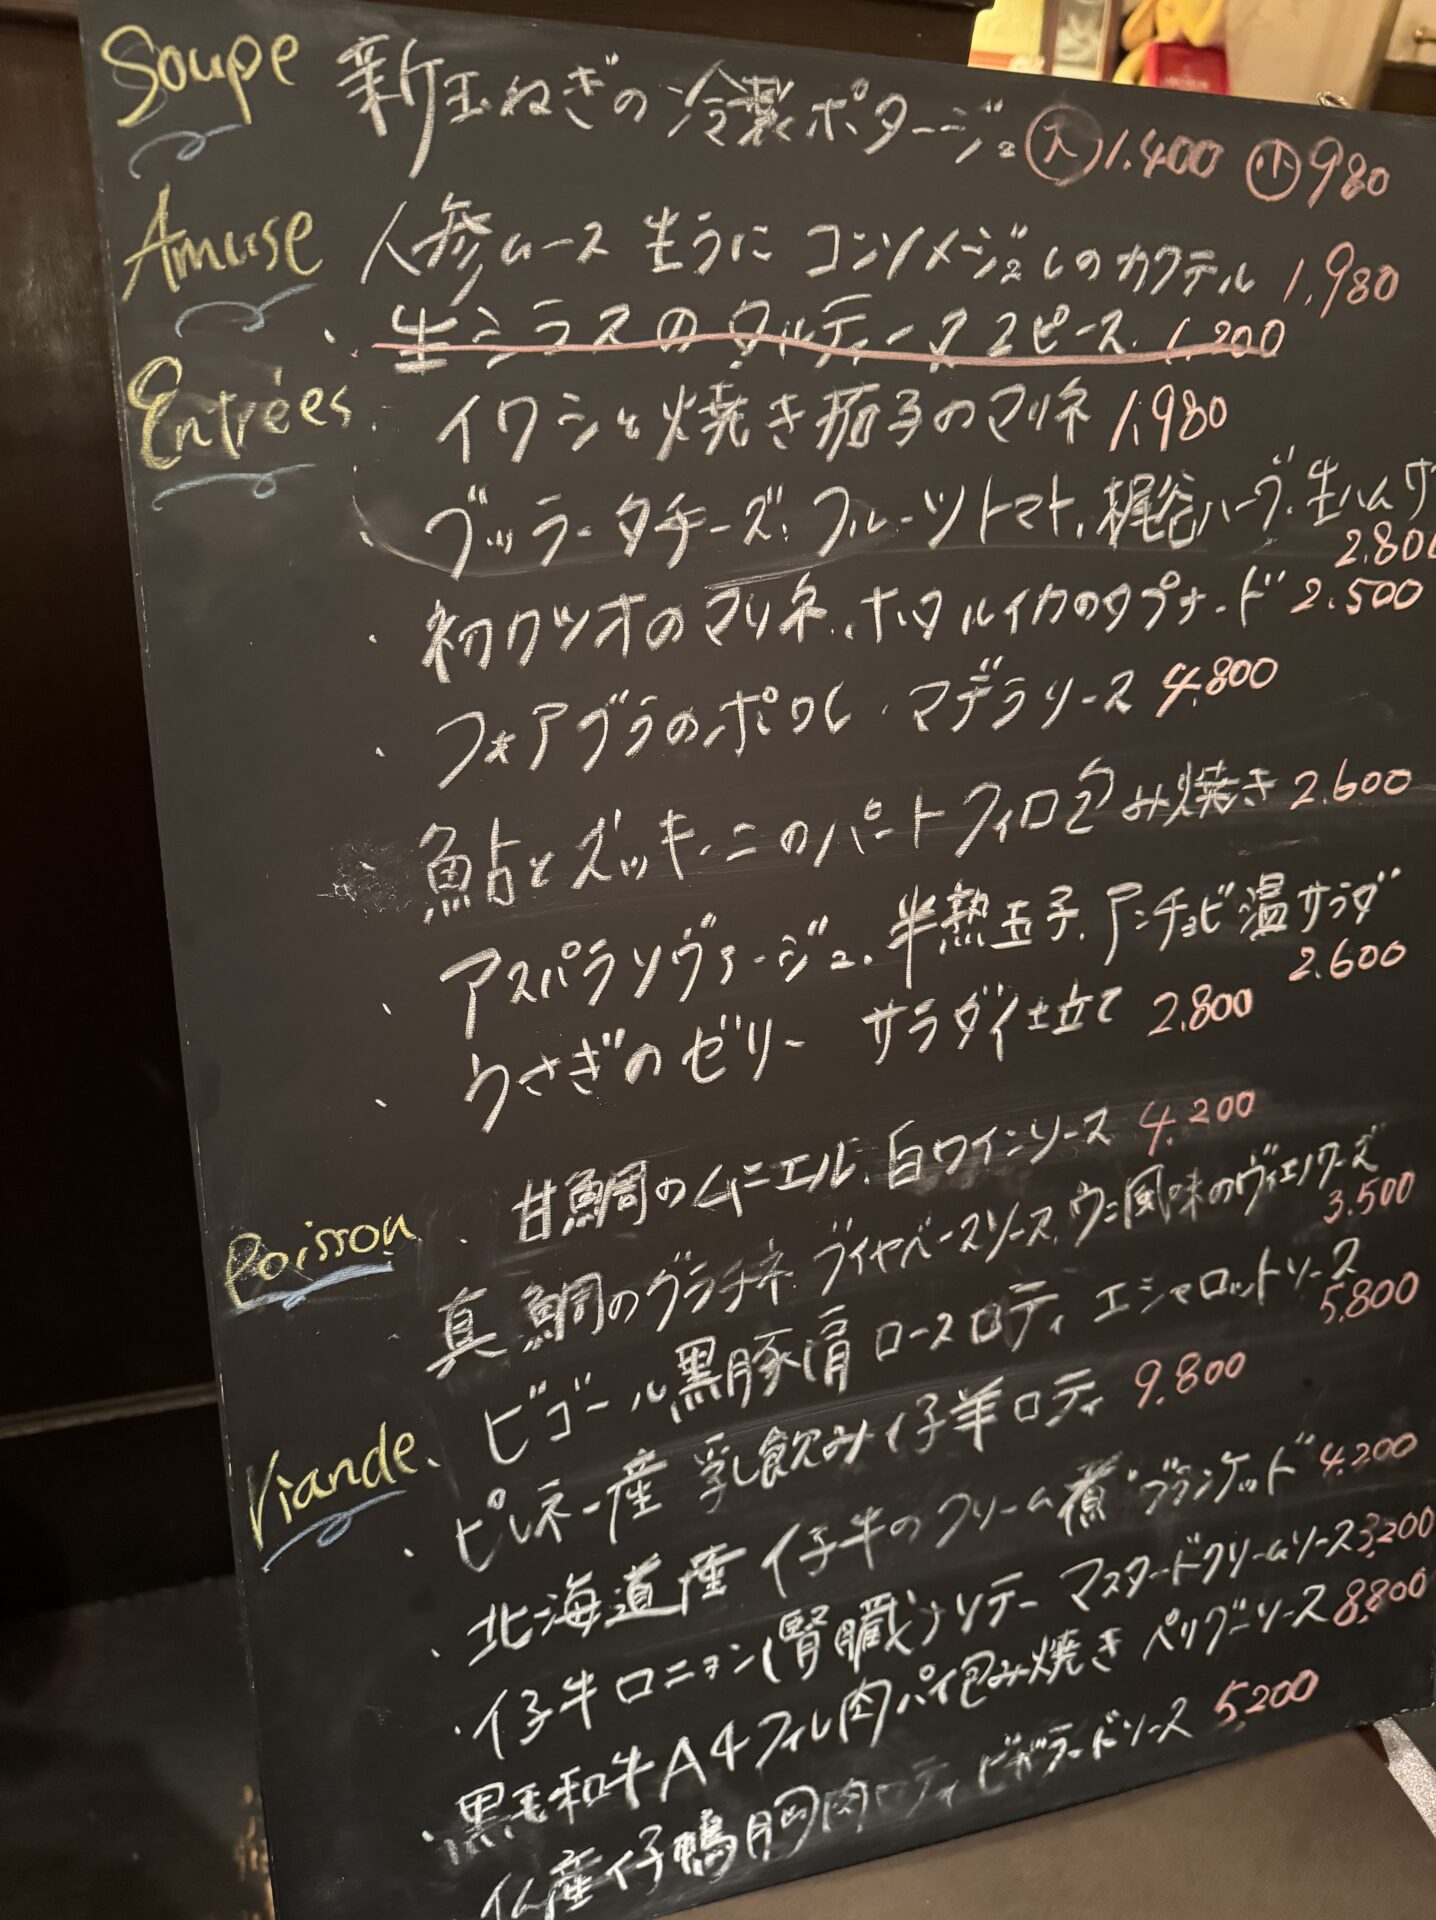 Soupe 新玉ねぎの冷製ポタージュ 大 1.400 小 980
Amuse 人参ムース 生うに コンソメジュレのカクテル 1.980
・生シラスのタルティーヌ 2ピース 1.200
Entrées ・イワシと焼き茄子のマリネ 1.980
・ブッラータチーズ、フルーツトマト、梶谷ハーブ、生ハムサ
2.800
・初カツオのマリネ、ホタルイカのタプナード 2.500
・フォアグラのポワレ マデラソース 4.800
・鮎とズッキーニのパートフィロ包み焼き 2.600
・アスパラソヴァージュ、半熟玉子、アンチョビ温サラダ
2.600
・うさぎのゼリー サラダ仕立て 2.800
Poisson ・甘鯛のムニエル、白ワインソース 4.200
真鯛のグラチネ、ブイヤベースソース、ウニ風味のヴィエノワーズ
3.500
Viande ・ビゴール黒豚肩ロースロティ エシャロットソース
5.800
・ピレネー産 乳飲み仔羊ロティ 9.800
・北海道産 仔牛のクリーム煮 ブランケット 4.200
・仔牛ロニョン(腎臓)ソテー マスタードクリームソース 3.200
・黒毛和牛A4フィレ肉パイ包み焼き ペリグーソース 8.800
仏産仔鴨胸肉ロティ ビガラードソース 5.200